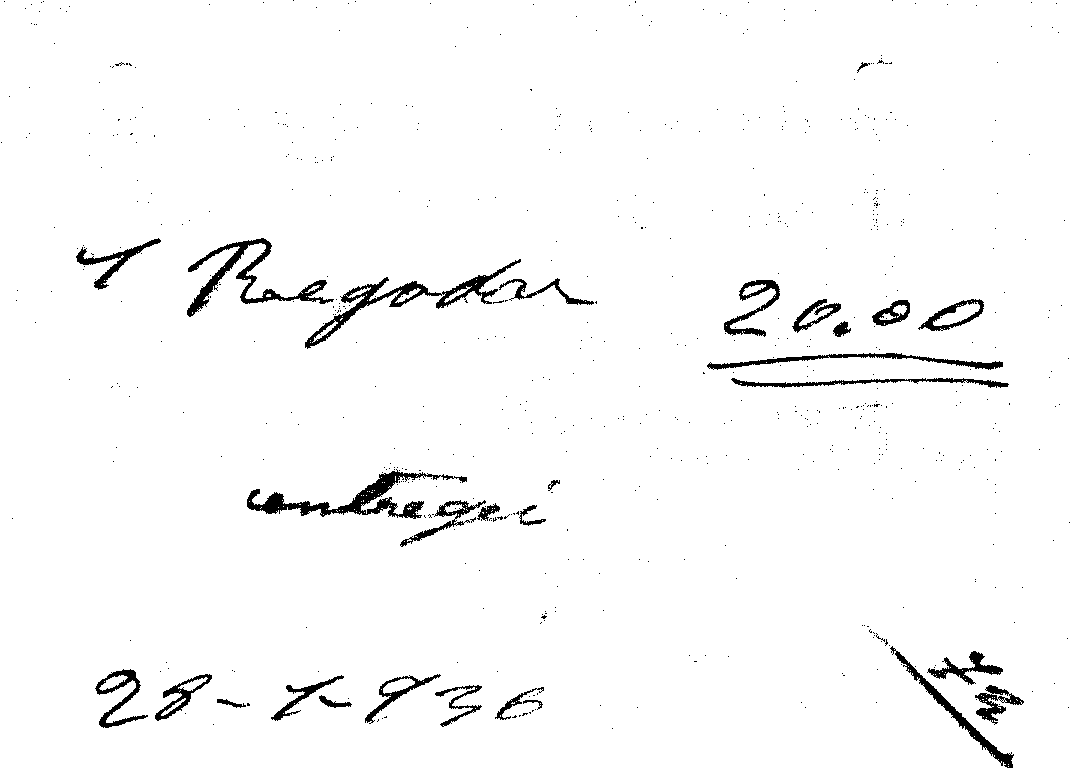 1 Regador 20.00
entreguei
28-1-936